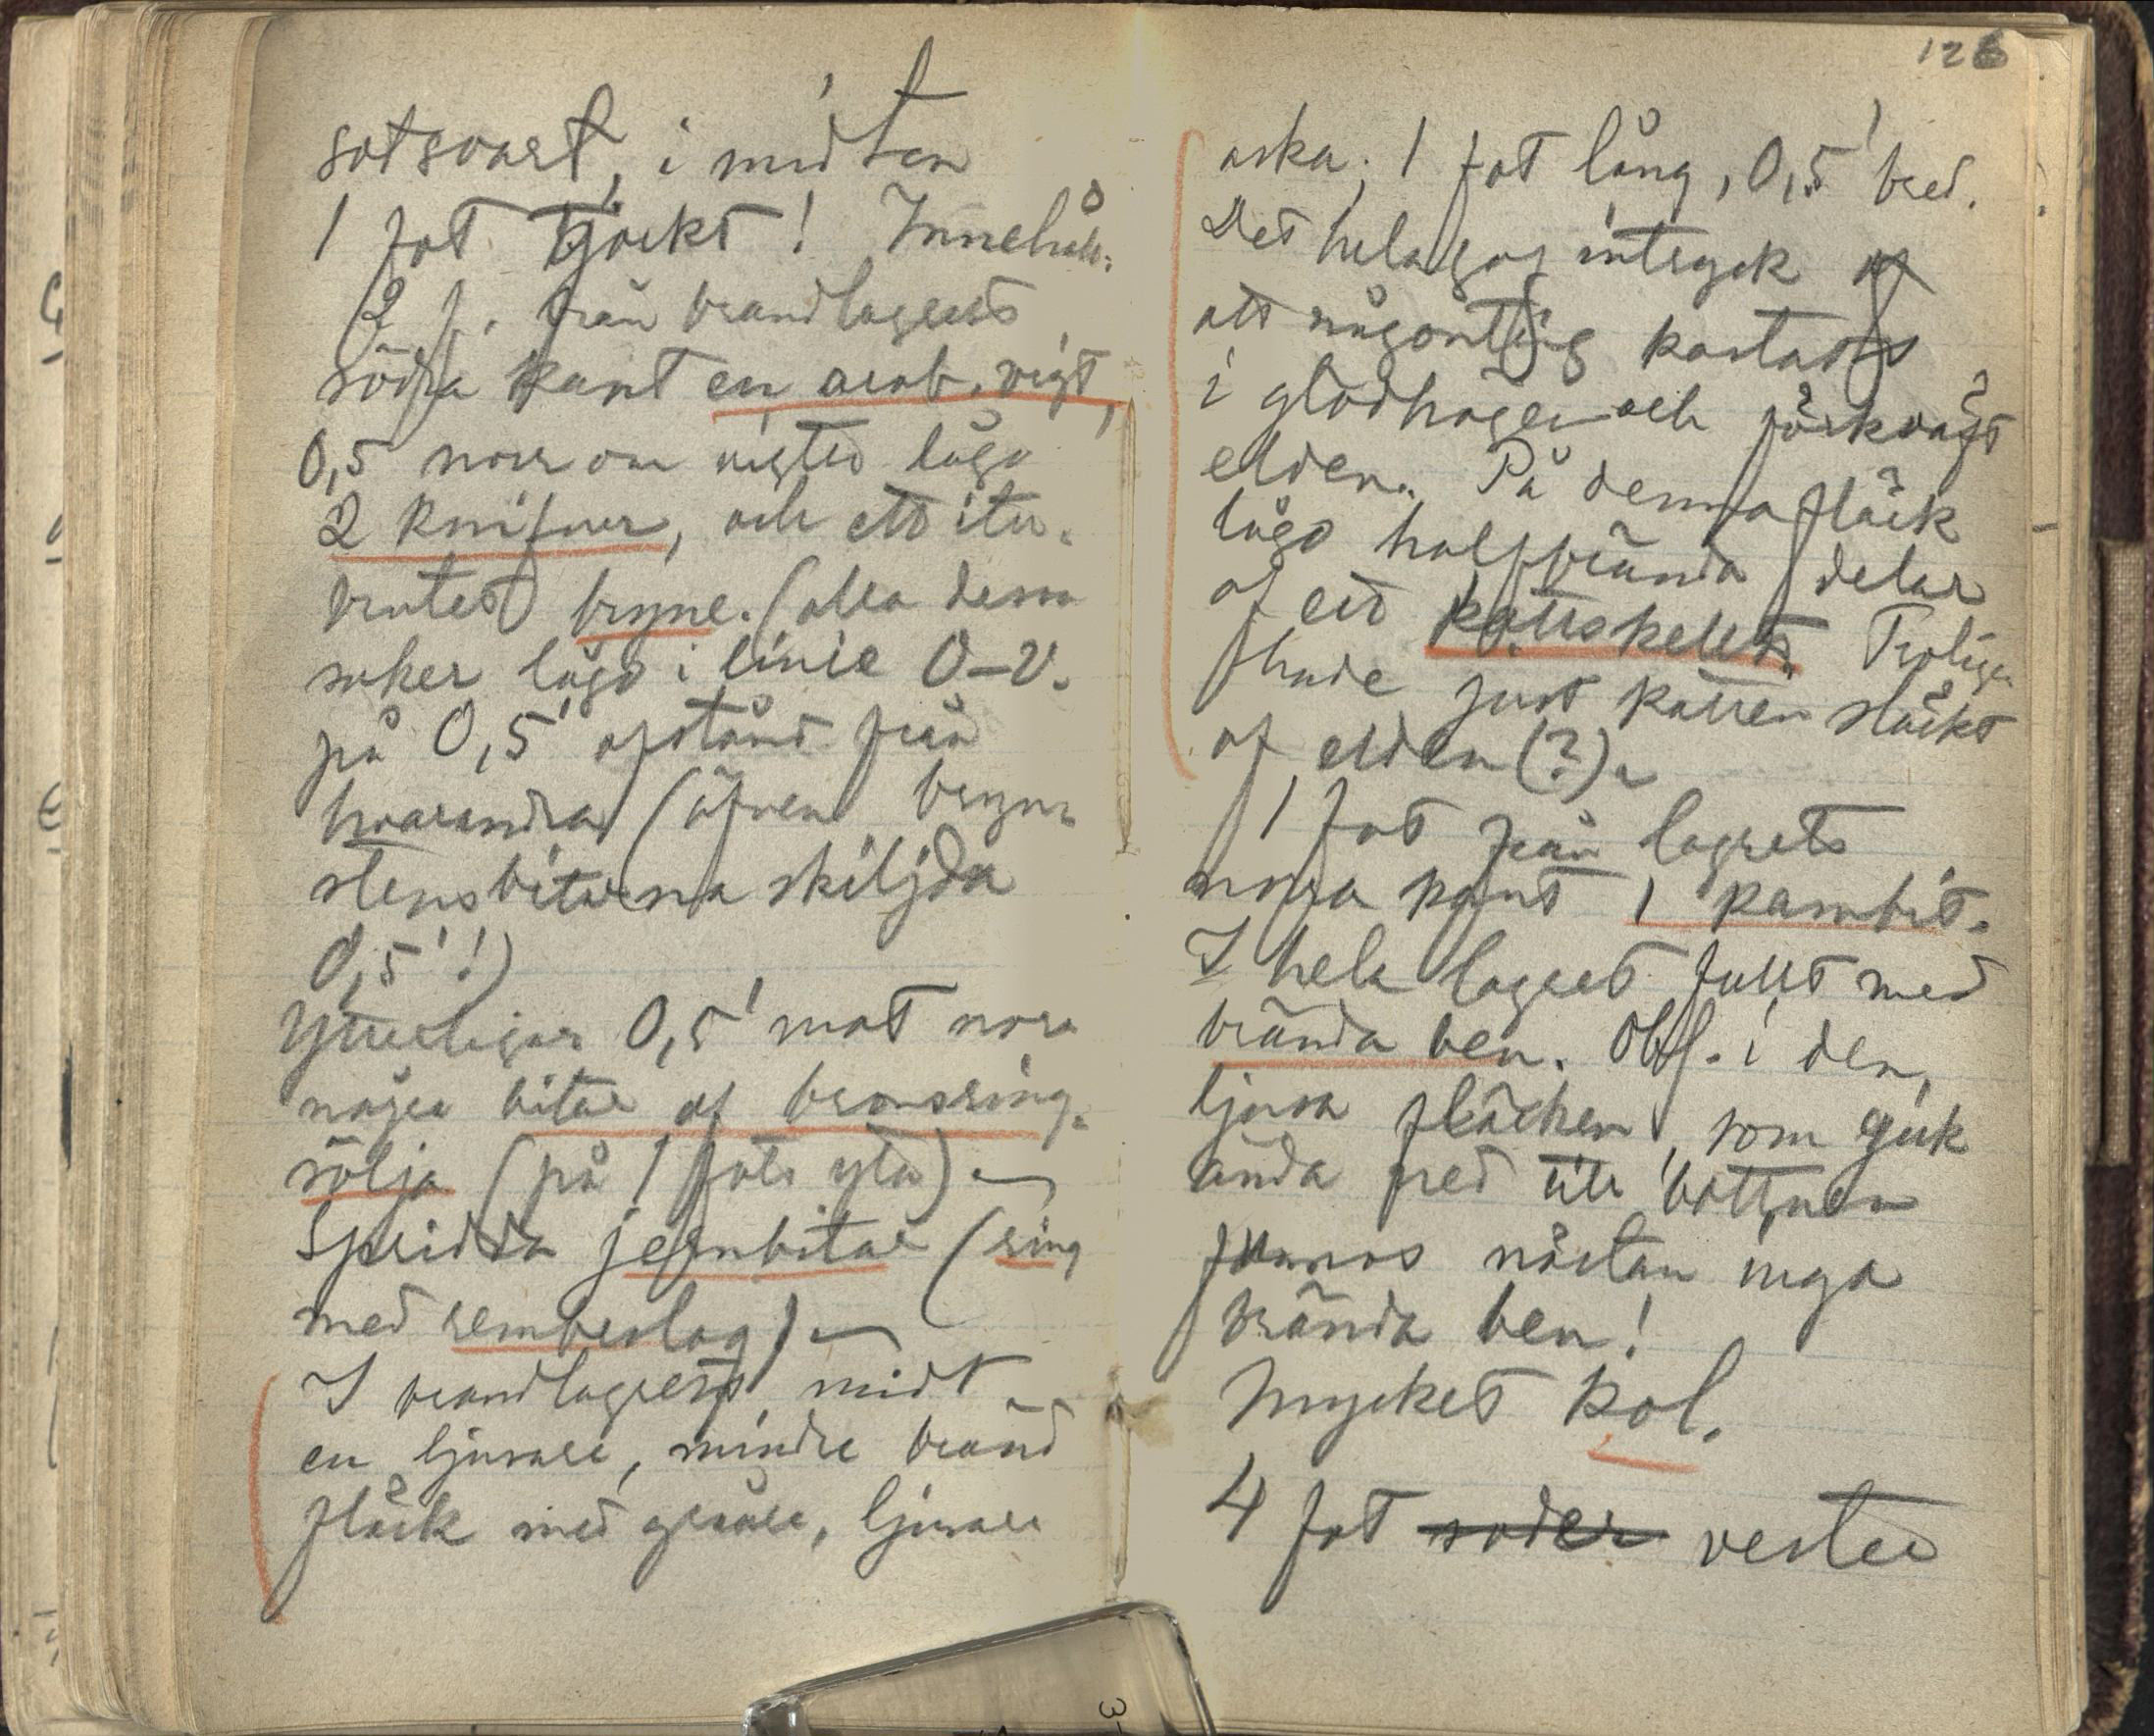 sotsvart, i midten
1 fot tjockt! Innehåll:
2 f. från brandlagrets
södra kant en arab. vigt,
0,5 norr om vigten lågo
2 knifvar, och ett itu-
brutet bryne. (alla dessa
saker lågo i linie O–V.
på 0,5' afstånd från
hvarandra (äfven bryn-
stensbitarna skiljda
0,5'!)
Ytterligare 0,5' mot norr
några bitar af bronsring-
sölja (på 1 fots yta). —
Spridda jernbitar (ring
med rembeslag). —
I brandlagrets midt
en ljusare, mindre bränd
fläck med gråare, ljusare
126
aska; 1 fot lång, 0,5' bred.
Det hela gaf intryck af
att någonting kastats
i glödhögen och förkväft
elden. På denna fläck
lågo halfbrända delar
af ett kattskelett. Troligen
hade just katten släckt
af elden (?).
1 fot från lagrets
norra kant 1 kambit.
I hela lagret fullt med
brända ben. Obs. i den
ljusa fläcken, som gick
ända ned till bottnen
funnos nästan inga
brända ben!
Mycket kol.
4 fot söder vester